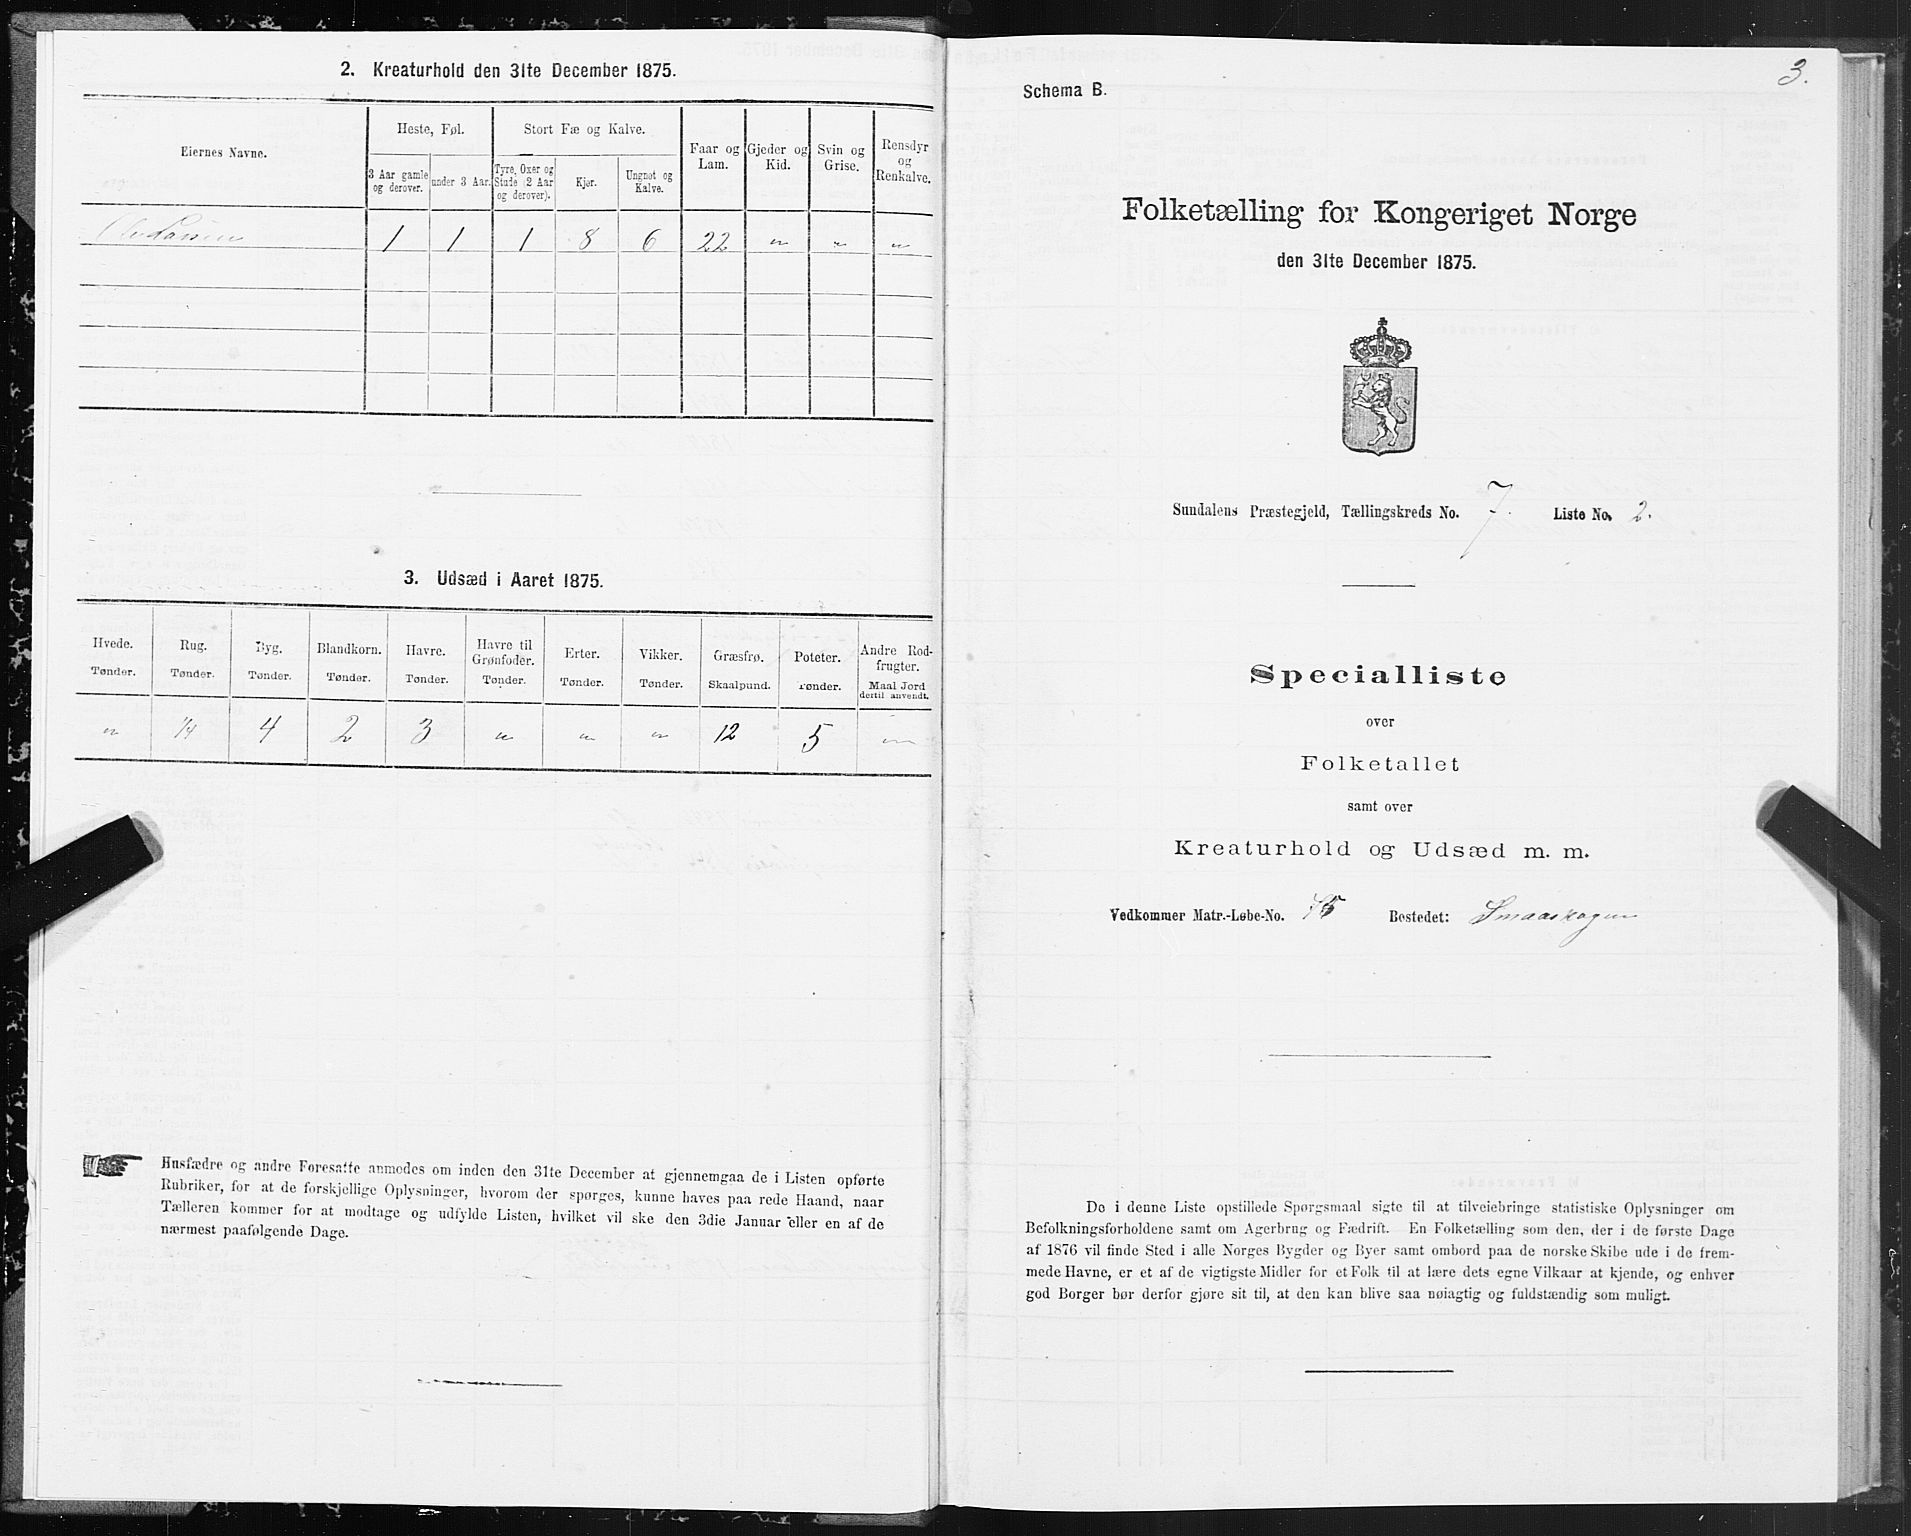 2. Kreaturhold den 31te December 1875.
Eiernes Navne.
Heste, Føl.
3 Aar gamle og derover.
under 3 Aar.
Stort Fæ og Kalve.
Tyre, Oxer og Stude (2 Aar og derover).
Kjør.
Ungnøt og Kalve.
Faar og Lam.
Gjeder og Kid.
Svin og Grise.
Rensdyr og Renkalve.
Ole Larsen 1 1 1 8 6 22 " " "
3. Udsæd i Aaret 1875.
Hvede. Rug. Byg. Blandkorn. Havre. Havre til Grønfoder. Erter. Vikker. Græsfrø. Poteter. Andre Rodfrugter.
Tønder. Tønder. Tønder. Tønder. Tønder. Tønder. Tønder. Tønder. Skaalpund. Tønder. Maal Jord dertil anvendt.
" 1/4 4 2 3 " " " 12 5 "
Husfædre og andre Foresatte anmodes om inden den 31te December at gjennemgaa de i Listen opførte
Rubriker, for at de forskjellige Oplysninger, hvorom der spørges, kunne haves paa rede Haand, naar
Tælleren kommer for at modtage og udfylde Listen, hvilket vil ske den 3die Januar eller en af de
nærmest paafølgende Dage.
3.
Schema B.
Folketælling for Kongeriget Norge
den 31te December 1875.
Sundalens Præstegjeld, Tællingskreds No. 7. Liste No. 2.
Specialliste
over
Folketallet
samt over
Kreaturhold og Udsæd m. m.
Vedkommer Matr.-Løbe-No. 75 Bostedet: Smaaskogen
De i denne Liste opstillede Spørgsmaal sigte til at tilveiebringe statistiske Oplysninger om
Befolkningsforholdene samt om Agerbrug og Fædrift. En Folketælling som den, der i de første Dage
af 1876 vil finde Sted i alle Norges Bygder og Byer samt ombord paa de norske Skibe ude i de frem-
mede Havne, er et af de vigtigste Midler for et Folk til at lære dets egne Vilkaar at kjende, og enhver
god Borger bør derfor gjøre sit til, at den kan blive saa nøiagtig og fuldstændig som muligt.